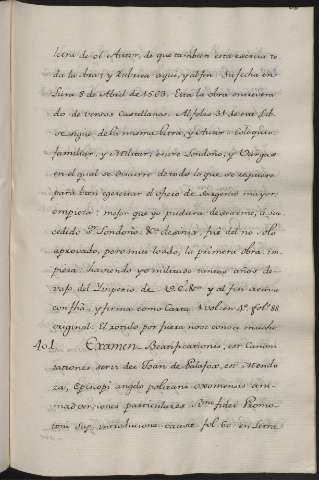 letra de el Autor, de que tambien esta escrita to
da la obra; y Rubrica aqui, y al fin. Su fecha en
8 de Abril de 1593. Esta la obra
do de versos Castellanos. Al folio 31 de este lib.
se sigue de la misma letra, y Autor Dialogo
familiar, y Militar, entre Londoño, y Vargas
en el qual se discurre de todo lo que se requiere
para bien egercitar el oficio de Sargento mayor.
empieza: mejor que yo pudiera desearme, à su
cedido Sr. Londoño &c.
aprovado, pero mui loado, la primera obra im
presa haviendo yo militado tantos años de
vaxo del Imperio de V.E. &c. y al fin
y firma como Carta 1 vol. en 4º fol. 88
original. El rotulo por fuera
401. Examen Beatificationis, et Canoni
zationis servi dei Joan de Palafox, et Mendo
za, Episcopi angelopolitani oxomensis ani
madversiones particulares Rmi. fidei Promo
toris sup. introductione causæ fol. 60 en letra